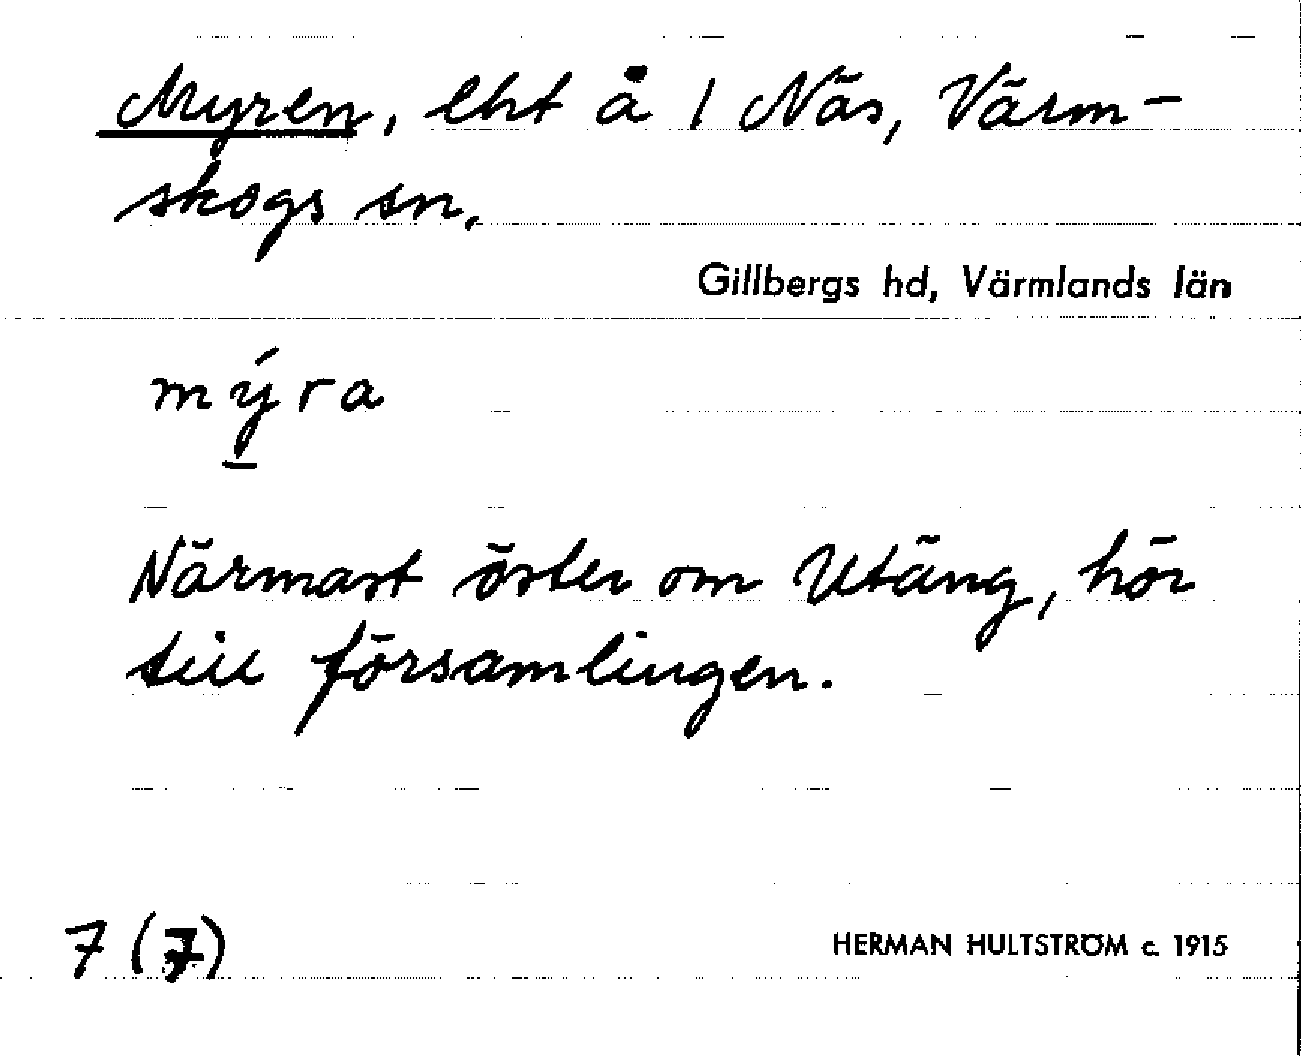 Myren, lht å 1 Näs, Värm-
skogs sn.
Gillbergs hd, Värmlands län
mý̱ra
Närmast öster om Utäng, hör
till församlingen.
7 (7)
HERMAN HULTSTRÖM c. 1915